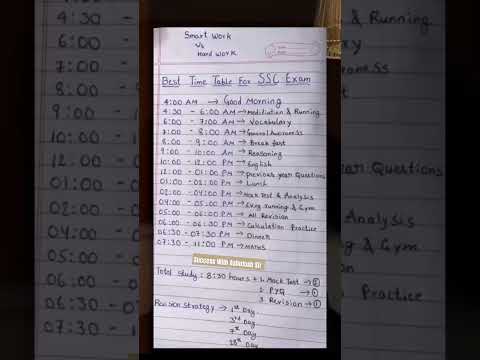 Smart Work
Vs
Hard Work
Best Time Table For SSC Exam
4:00 AM → Good Morning
4:30 - 6:00 AM → Meditation & Running
6:00 - 7:00 AM → Vocabulary
7:00 - 8:00 AM → General Awareness
8:00 - 9:00 AM → Break fast
9:00 - 10:00 AM → Reasoning
10:00 - 12:00 PM → English
12:00 - 01:00 PM → previous year Questions
01:00 - 02:00 PM → Lunch
02:00 - 04:00 PM → Mock Test & Analysis
04:00 - 05:00 PM → Evng running & Gym
05:00 - 06:00 PM → All Revision
06:00 - 06:30 PM → Calculation Practice
06:30 - 07:30 PM → Dinner
07:30 - 11:00 PM → MATHS
Success With Ashutosh Sir
Total study: 8:30 hours + 1. Mock Test →
2. PYQ → ①
3. Revision → ①
Revision strategy → 1st Day
3rd Day
7th Day
28th Day
4:30
6:00
7:00
8:00
9:00
10:00
12:00
01:00
02:00
04:00
05:00
06:00
06:30
07:30
& Running
ary
areness
st
ear Questions
Analysis
& Gym
Practice